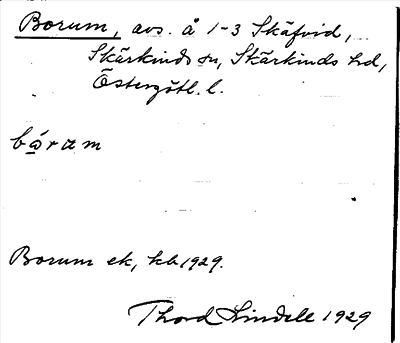 Borum, avs. å 1-3 Skäfvid,
Skärkinds sn, Skärkinds hd,
Östergötl. l.
bóram
Borum ek, kb 1929.
Thord Lindell 1929